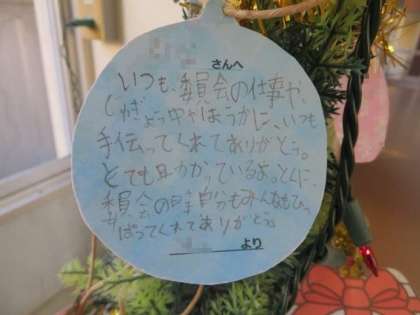 さんへ
いつも、委員会の仕事や、
じゅぎょう中やほうかに、いつも
手伝ってくれてありがとう。
とても助かっているよ。とくに、
委員会の時自分もみんなもひっ
ぱってくれてありがとう。
より